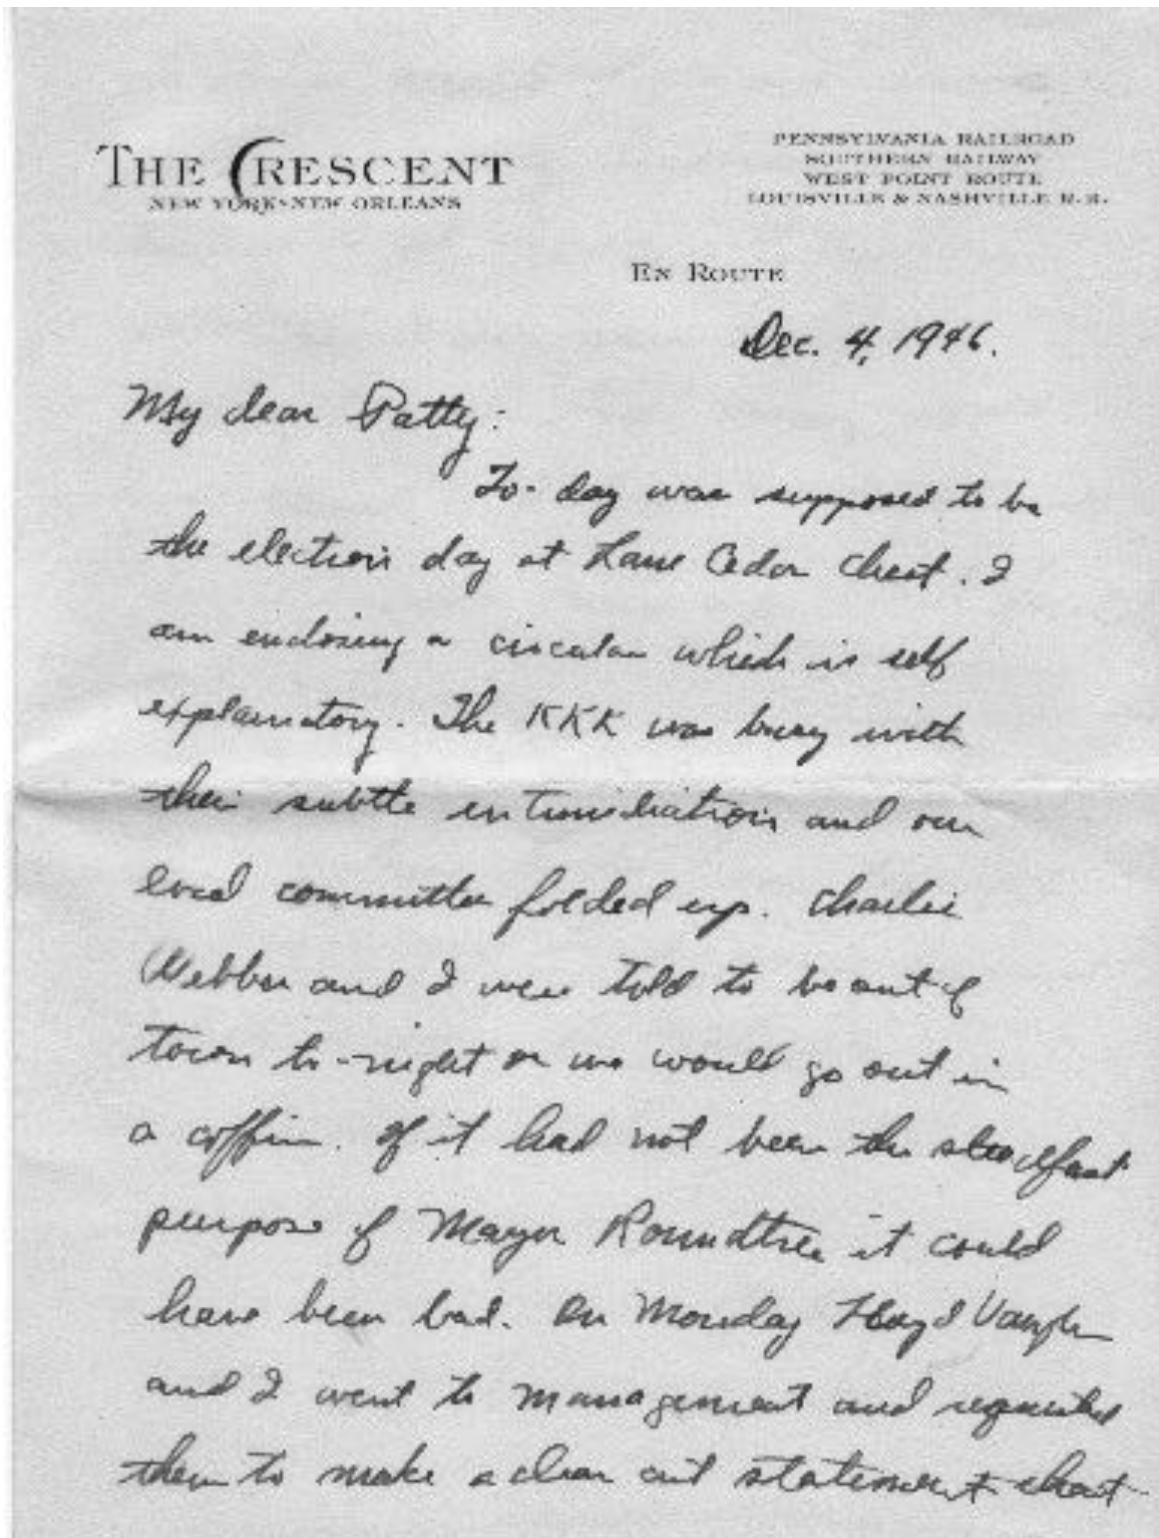 THE CRESCENT
NEW YORK-NEW ORLEANS
PENNSYLVANIA RAILROAD
SOUTHERN RAILWAY
WEST POINT ROUTE
LOUISVILLE & NASHVILLE R. R.
EN ROUTE
Dec. 4, 1946.
My dear Patty:
To-day was supposed to be
the election day at Lane Cedar Chest. I
am enclosing a circular which is self
explanatory. The KKK was busy with
their subtle intimidation and our
local committee folded up. Charlie
Webber and I were told to be out of
town to-night or we would go out in
a coffin. If it had not been the steadfast
purpose of Mayor Roundtree it could
have been bad. On Monday Floyd Vaughn
and I went to management and requested
them to make a clear cut statement that